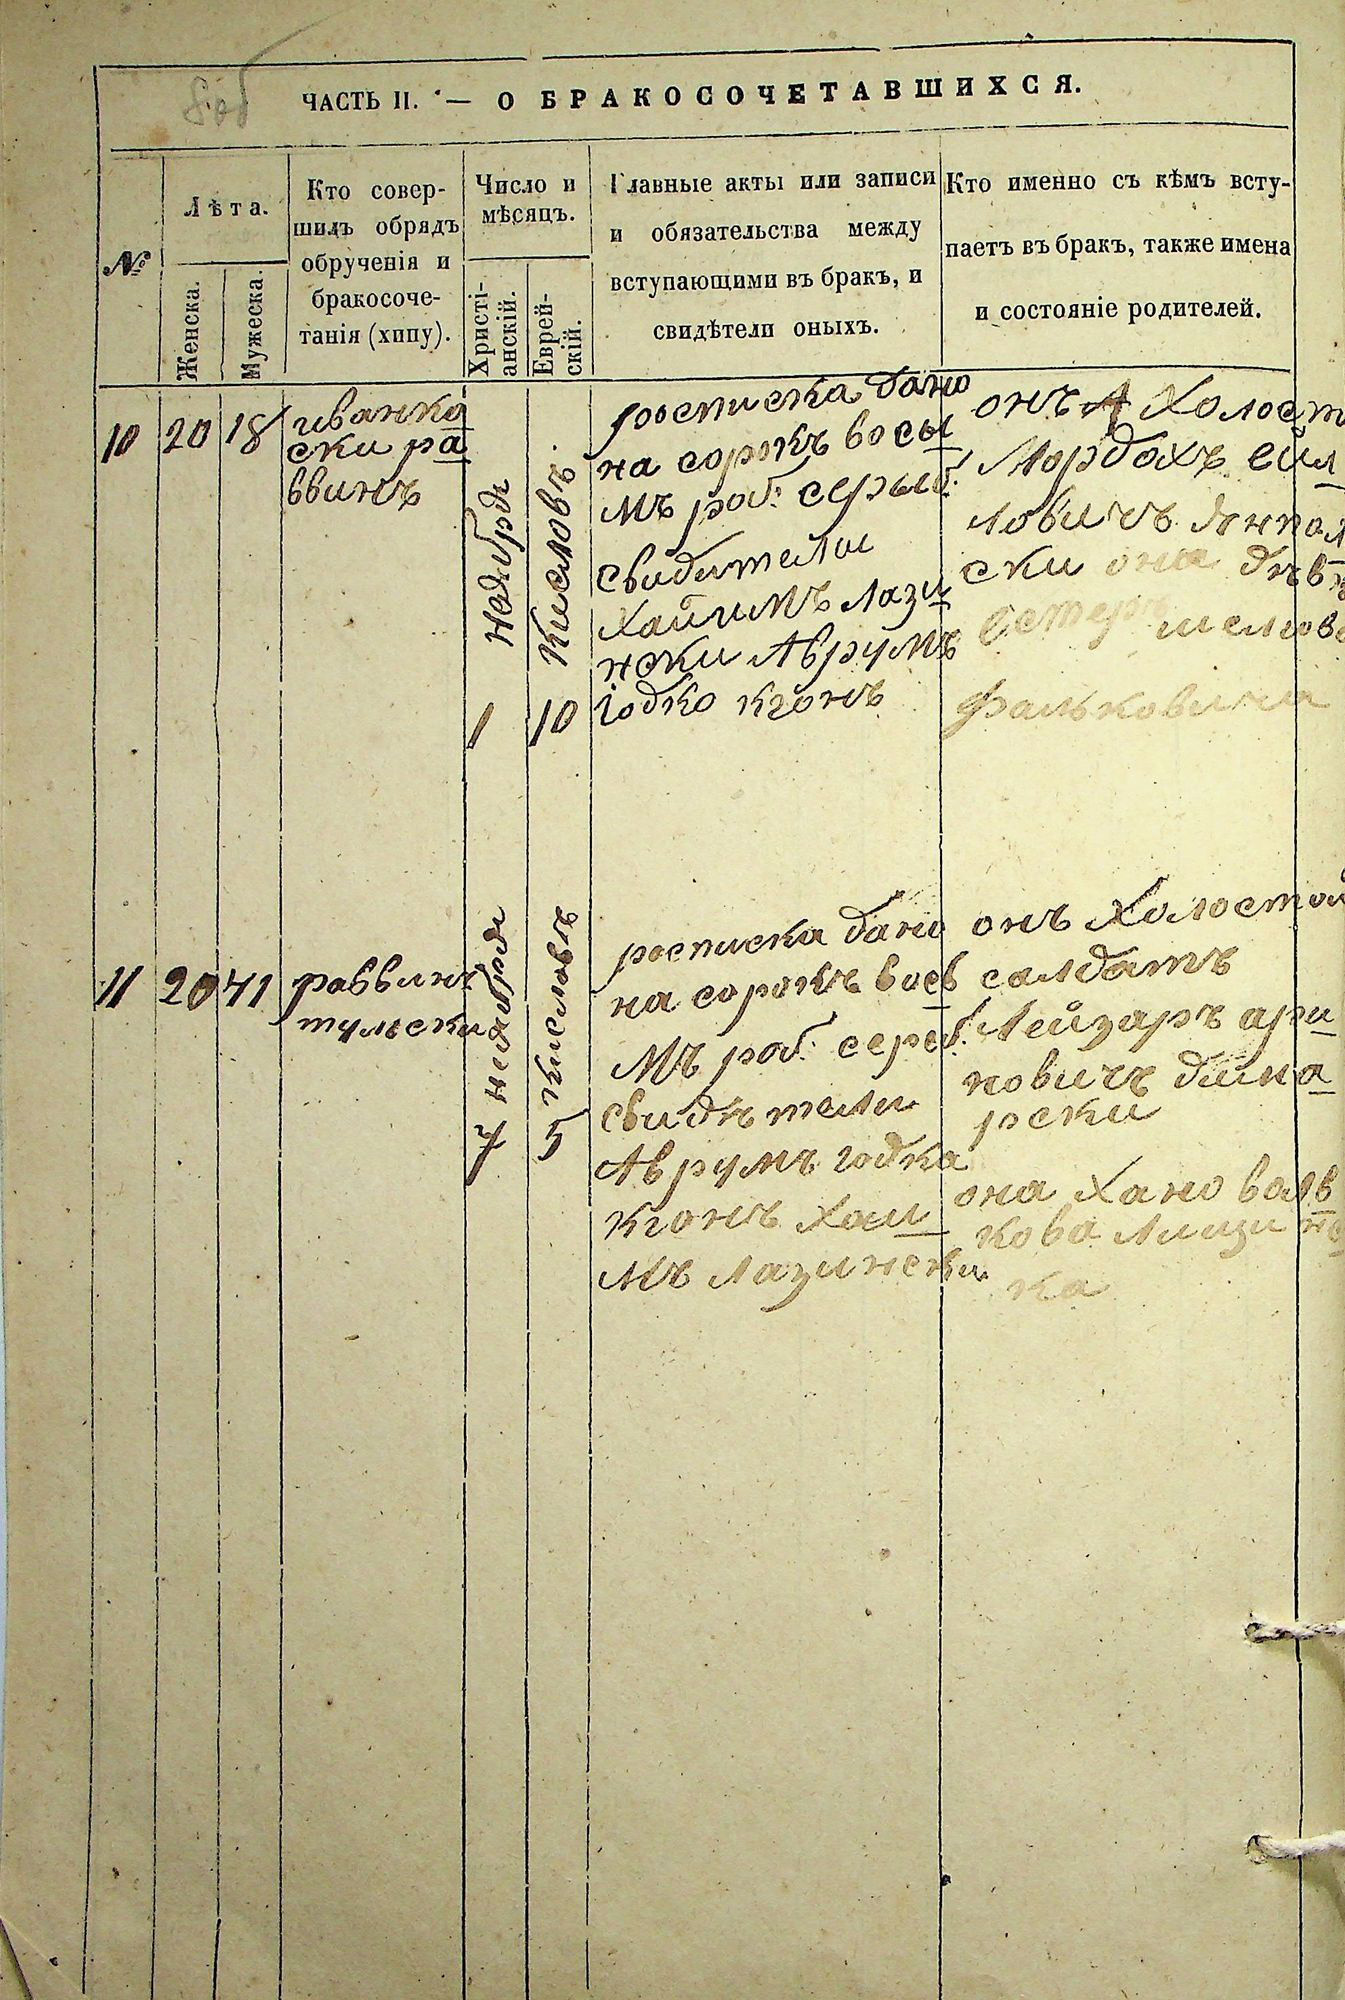 8об
ЧАСТЬ II. — О БРАКОСОЧЕТАВШИХСЯ.
№
Лѣта.
Женска.
Мужеска.
Кто совер-
шилъ обрядъ
обрученія и
бракосоче-
танія (хипу).
Число и
мѣсяцъ.
Христі-
анскій.
Еврей-
скій.
Главные акты или записи
и обязательства между
вступающими въ бракъ, и
свидѣтели оныхъ.
Кто именно съ кѣмъ всту-
паетъ въ бракъ, также имена
и состояніе родителей.
10
20
18
иванко
ски ра
ввинъ
ноября
1
Кисловъ
10
росписка дано
на сорокъ восы
мъ роб: сѣрыб:
свидители
Хаиимъ лази
нски Аврумъ
Іодко кгонъ
онъ Холост
Мордохъ
ловичъ Янпол
ски она дѣв
Естеръ
фальковича
11
20
41
роввинъ
тульски
ноября
7
Кисловъ
5
росписка дано
на сорокъ восѣ
мъ роб: сереб:
свидѣтели
Аврумъ іодка
кгонъ хаи
мъ лазински
онъ Холостой
салдатъ
Лейзаръ ари
новичъ дина
рски
она Хано волв
кова лиши нс
ка